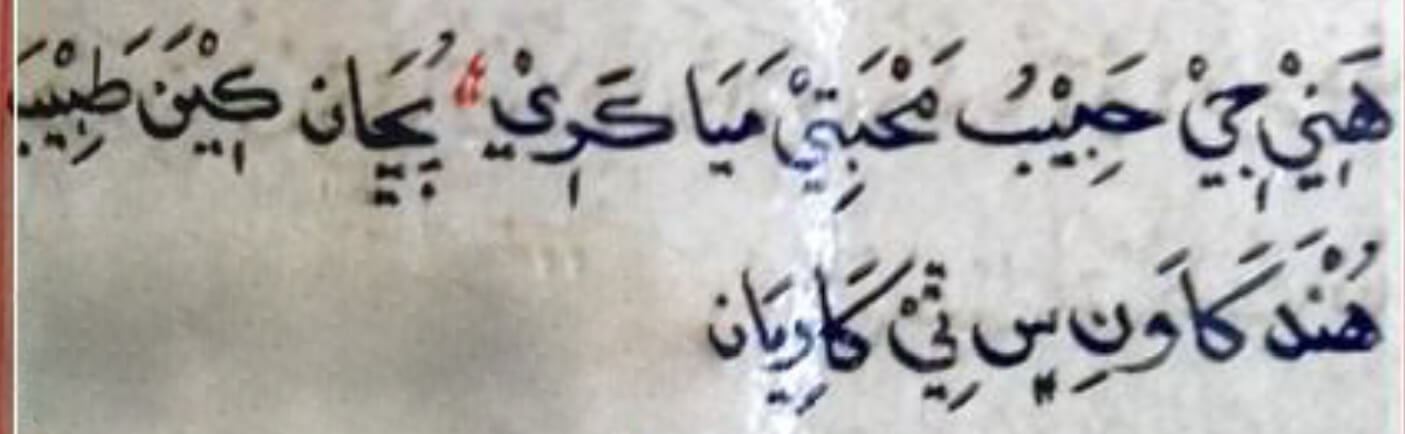 هَنِيْ جِيْ حَبِيْبُ مَحْبَتِيْ مَيَا ڪَرِيْ ؛ پُڇَان ڪِيْنَ طَبِيْبَ
هُنْدَ ڪَاوَنِ سٍ تِيْ ڪَاوِيَان